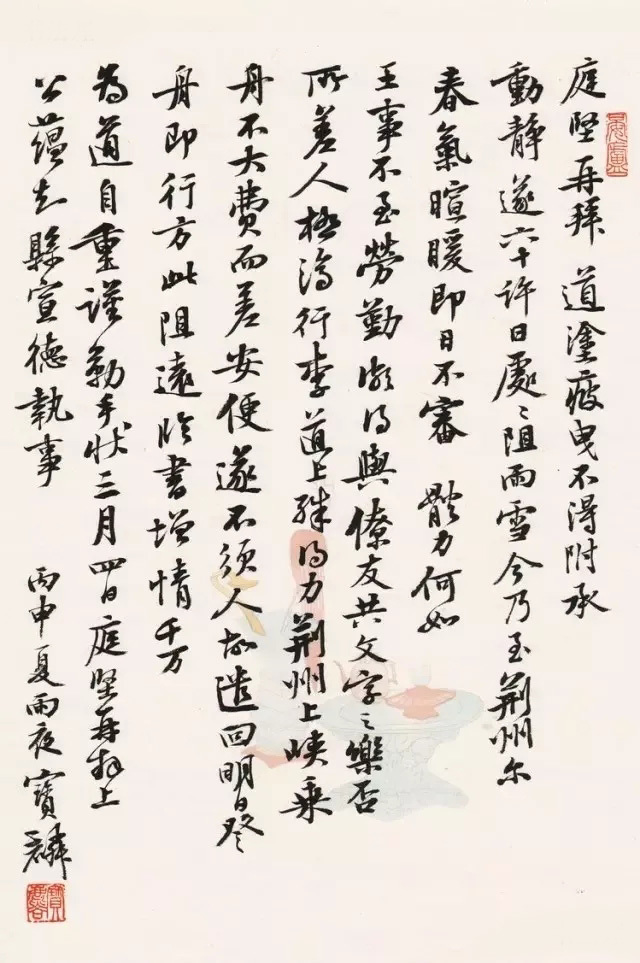 庭堅再拜 道塗疲曳不得附承
動靜遂六十許日處〻阻雨雪今乃至荆州尔
春氣暄暖即日不審 體力何如
王事不至勞勤頗得與僚友共文字之樂否
所差人極濟行李道上殊得力荆州上峽乘
舟不大費而差安便遂不須人故遣回明日登
舟即行方此阻遠臨書增情千万
為道自重謹勒手狀三月四日庭堅再拜上
公藴知縣宣德執事
丙申夏雨夜寶麟